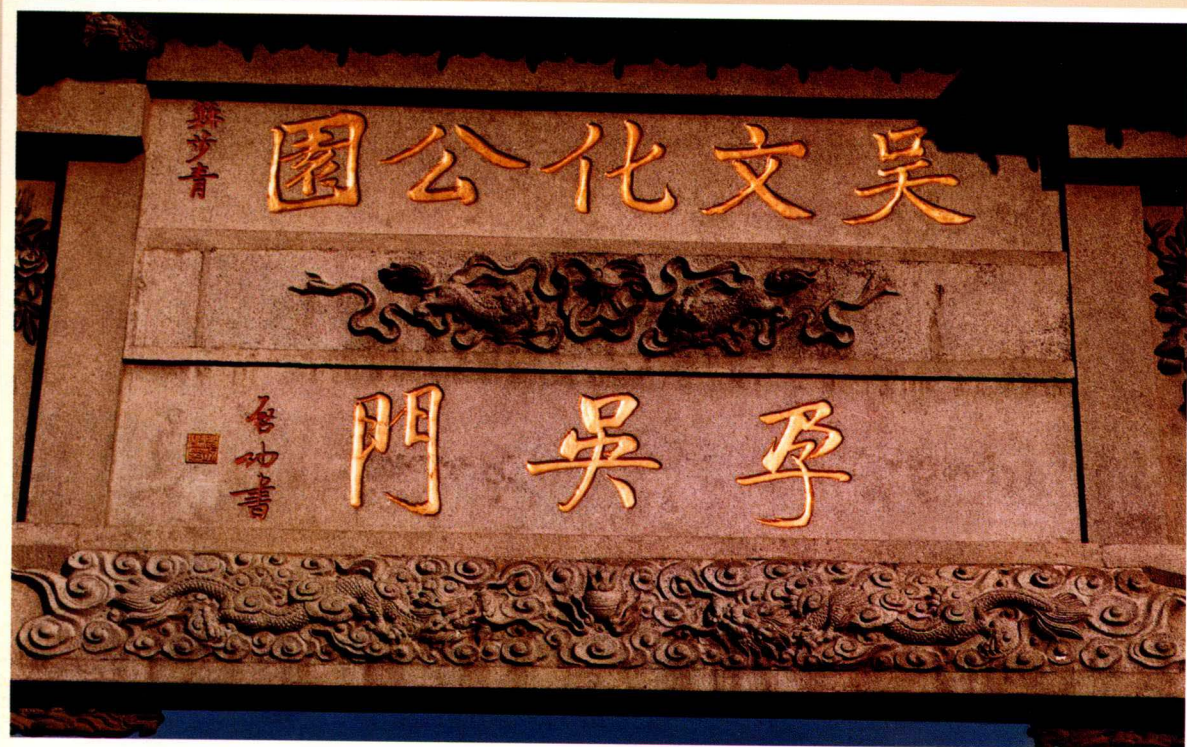 吴文化公園
蘇步青
孕吳門
启功書